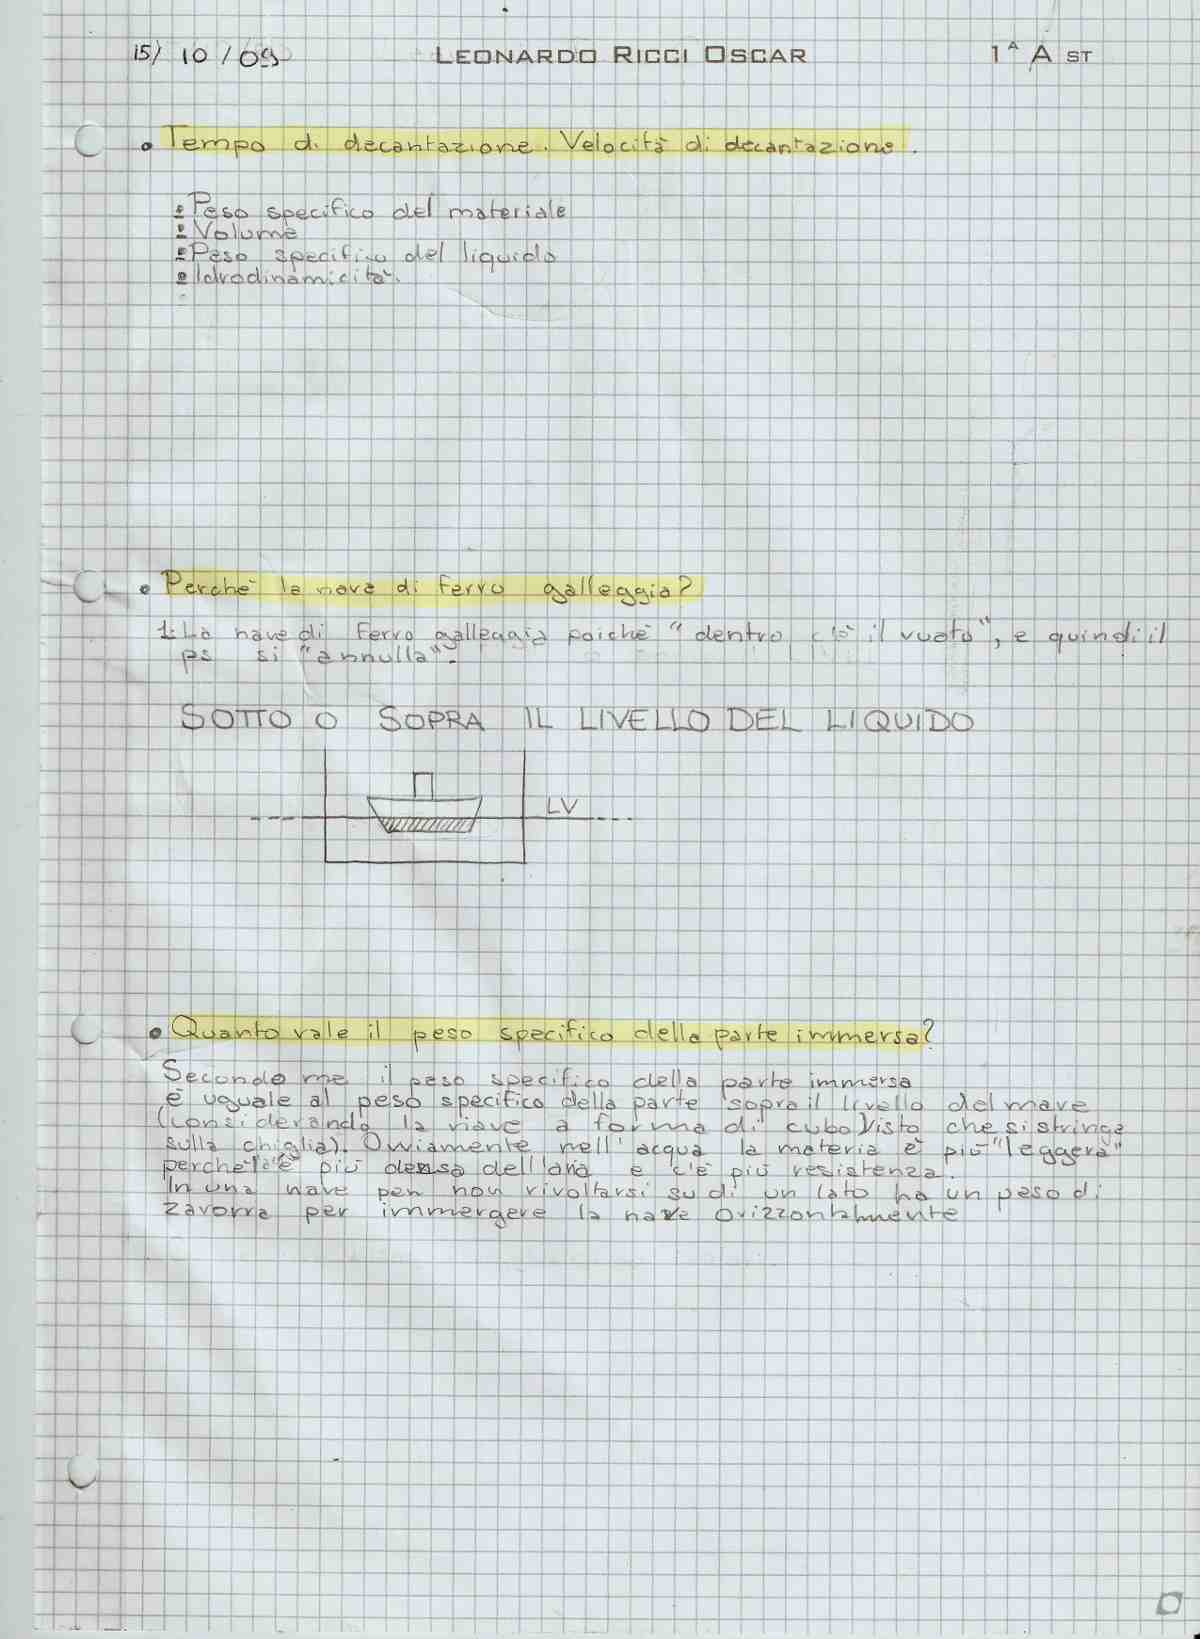 15/10/09 LEONARDO RICCI OSCAR 1^A A ST
• Tempo di decantazione. Velocità di decantazione.
• Peso specifico del materiale
• Volume
• Peso specifico del liquido
• Idrodinamicità.
• Perché la nave di ferro galleggia?
1: La nave di ferro galleggia poiché "dentro c'è il vuoto", e quindi il
ps si "annulla".
SOTTO O SOPRA IL LIVELLO DEL LIQUIDO
LV
• Quanto vale il peso specifico della parte immersa?
Secondo me il peso specifico della parte immersa
è uguale al peso specifico della parte sopra il livello del mave
(considerando la nave a forma di cubo visto che si stringe
sulla chiglia). Ovviamente nell'acqua la materia è più "leggera"
perché è più densa dell'aria e c'è più resistenza.
In una nave per non rivoltarsi su di un lato ha un peso di
zavorra per immergere la nave orizzontalmente